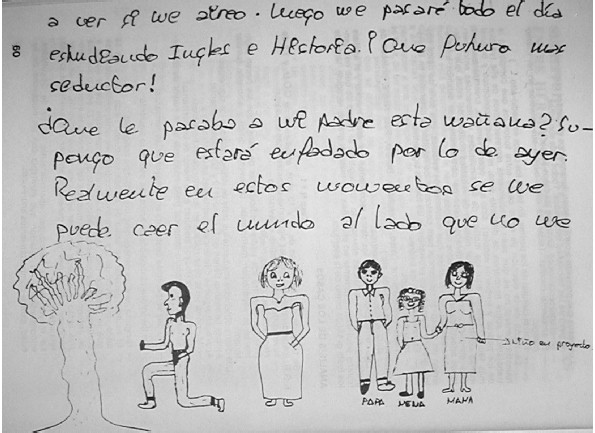 a ver si me aireo. Luego me pasaré todo el día
8
estudiando Ingles e Historia. ¡Que futuro mas
seductor!
¿Que le pasaba a mi padre esta mañana? Su-
pongo que estará enfadado por lo de ayer.
Realmente en estos momentos se me
puede caer el mundo al lado que no me
niño en proyecto
PAPA NENA MAMA